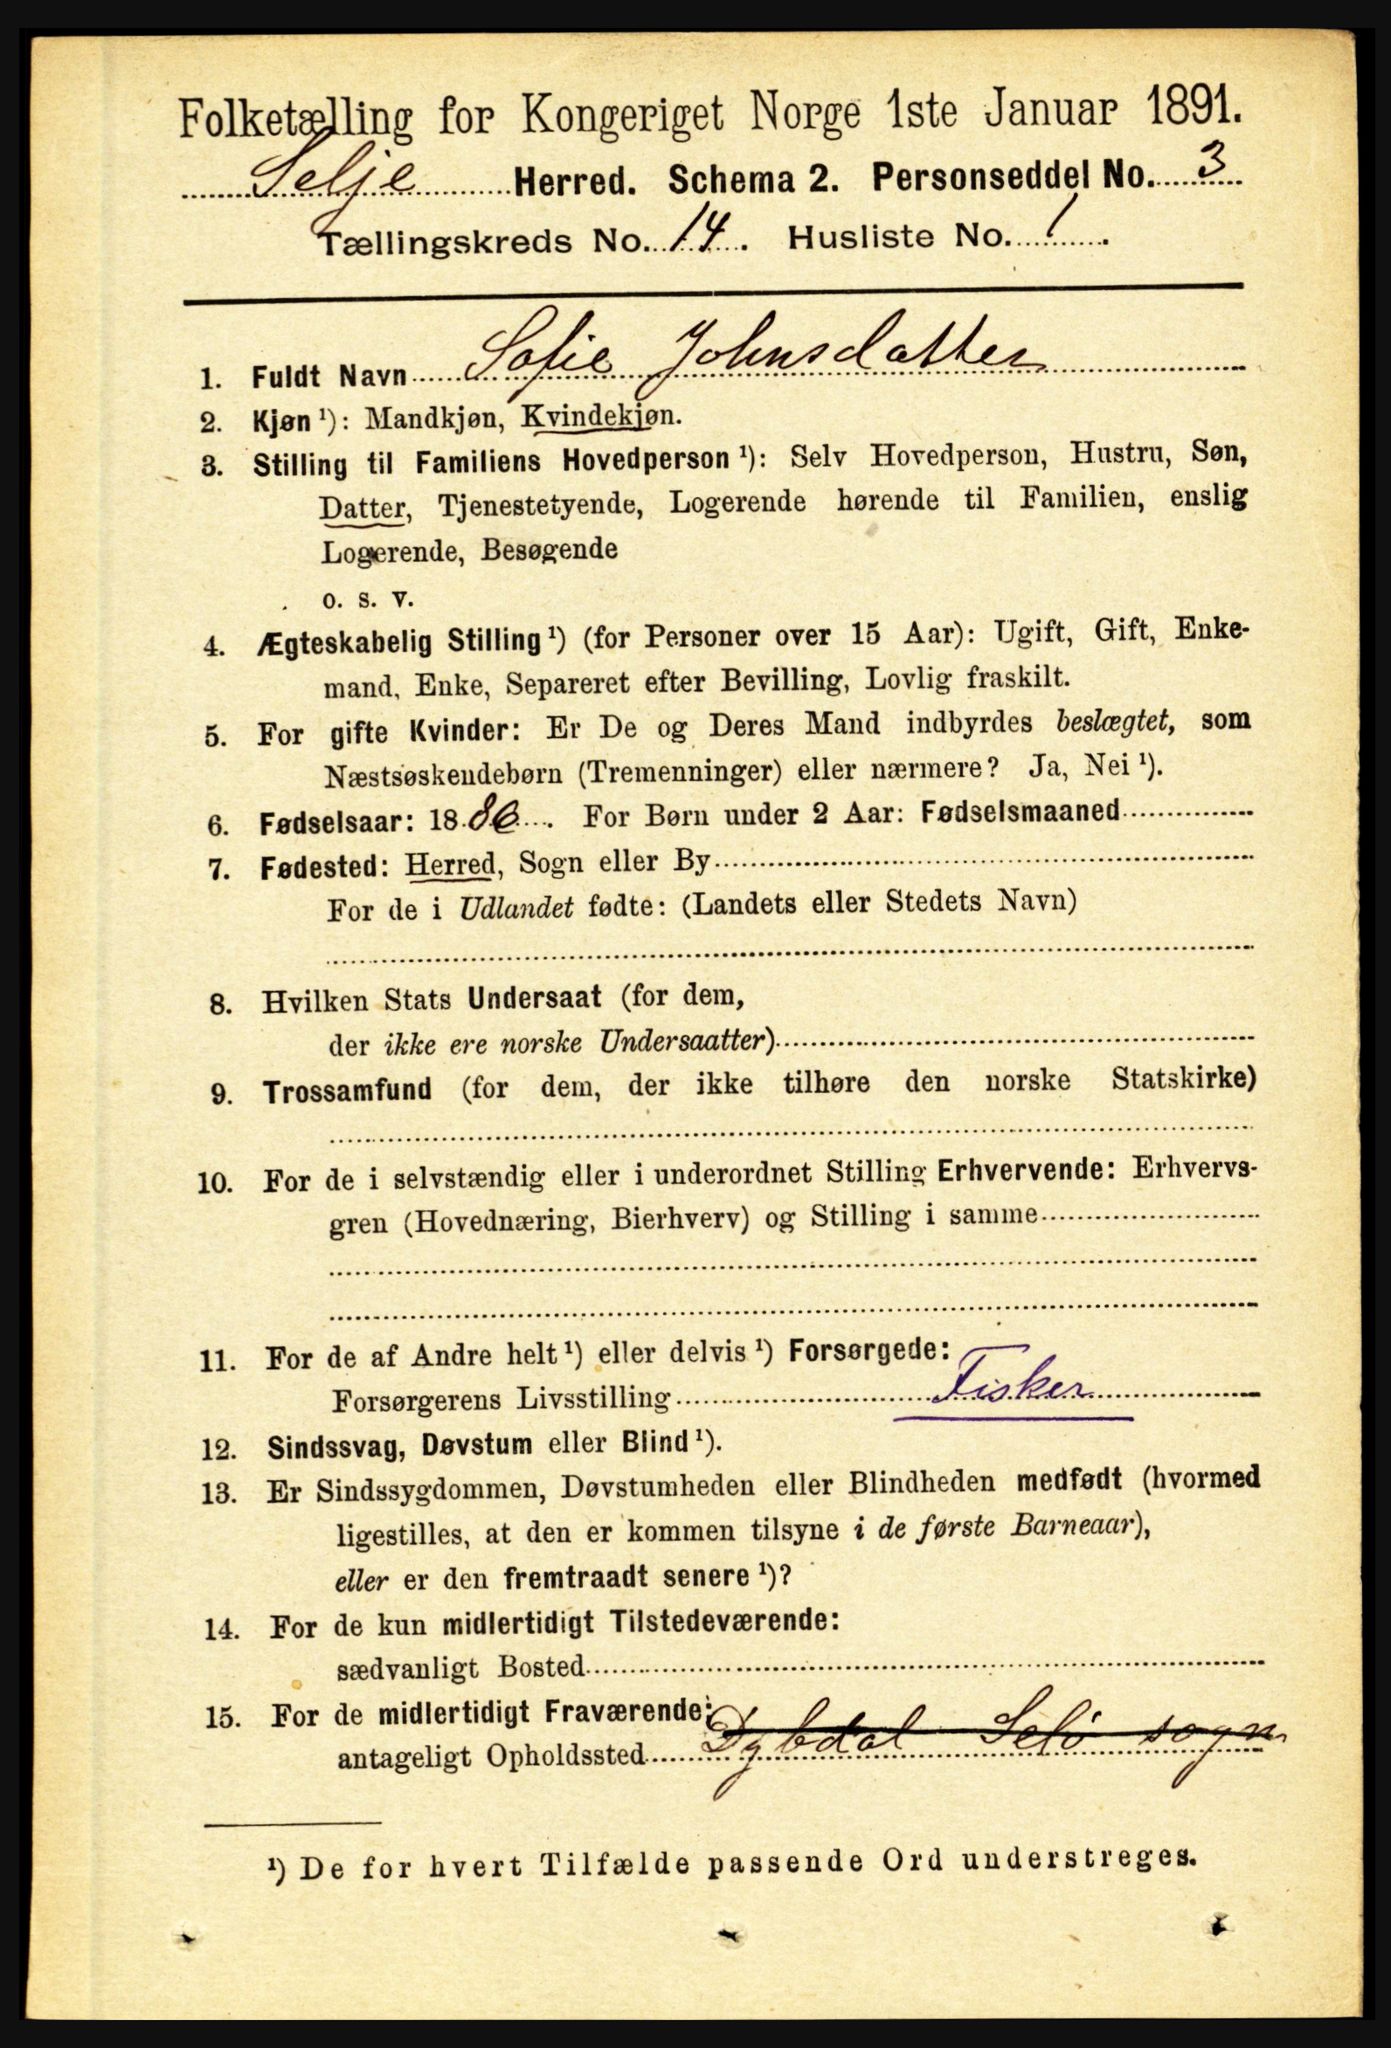 Folketælling for Kongeriget Norge 1ste Januar 1891.
Selje Herred. Schema 2. Personseddel No. 3
Tællingskreds No. 14. Husliste No. 1.
1. Fuldt Navn Sofie Johnsdatter
2. Kjøn ¹): Mandkjøn, Kvindekjøn.
3. Stilling til Familiens Hovedperson ¹): Selv Hovedperson, Hustru, Søn,
Datter, Tjenestetyende, Logerende hørende til Familien, enslig
Logerende, Besøgende
o. s. v.
4. Ægteskabelig Stilling ¹) (for Personer over 15 Aar): Ugift, Gift, Enke-
mand, Enke, Separeret efter Bevilling, Lovlig fraskilt.
5. For gifte Kvinder: Er De og Deres Mand indbyrdes beslægtet, som
Næstsøskendebørn (Tremenninger) eller nærmere? Ja, Nei ¹).
6. Fødselsaar: 1886. For Børn under 2 Aar: Fødselsmaaned
7. Fødested: Herred, Sogn eller By
For de i Udlandet fødte: (Landets eller Stedets Navn)
8. Hvilken Stats Undersaat (for dem,
der ikke ere norske Undersaatter)
9. Trossamfund (for dem, der ikke tilhøre den norske Statskirke)
10. For de i selvstændig eller i underordnet Stilling Erhvervende: Erhvervs-
gren (Hovednæring, Bierhverv) og Stilling i samme
11. For de af Andre helt ¹) eller delvis ¹) Forsørgede:
Forsørgerens Livsstilling Fisker
12. Sindssvag, Døvstum eller Blind ¹).
13. Er Sindssygdommen, Døvstumheden eller Blindheden medfødt (hvormed
ligestilles, at den er kommen tilsyne i de første Barneaar),
eller er den fremtraadt senere ¹)?
14. For de kun midlertidigt Tilstedeværende:
sædvanligt Bosted
15. For de midlertidigt Fraværende:
antageligt Opholdssted Dybdal Selø sogn
¹) De for hvert Tilfælde passende Ord understreges.